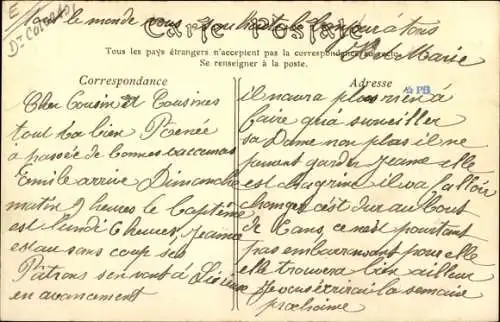 tout le monde vous souhaite le bonjour à tous
Marie
E
Dt Colorado
Carte Postale
Tous les pays étrangers n'acceptent pas la correspondance au recto.
Se renseigner à la poste.
Correspondance
Cher Cousin et Cousines
tout va bien Renée
à passée de bonnes vaccances
Emile arrive Dimanche
matin 9 heures le Capitème
est lundi 6 heures, Jeanne
est au sans coup ses
Patrons s'en vont à
en avancement
Adresse
PB
il n'aura plus rien à
faire qu'a surveiller
sa Dame non plus il ne
peuvent garder Jeanne elle
est chagrine il va falloir
changer c'est dur au bout
de ans, ce n'est pourtant
pas embarrassant pour elle
elle trouvera bien ailleur
Je vous écrirai la semaine
prochaine